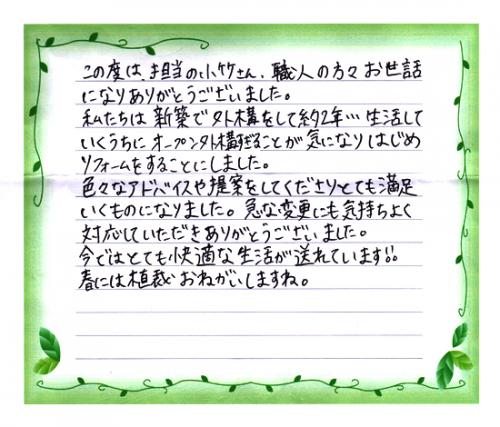 この度は、担当の小竹さん、職人の方々お世話
になりありがとうございました。
私たちは新築で外構をして約2年…生活して
いくうちにオープン外構すぎることが気になりはじめ
リフォームをすることにしました。
色々なアドバイスや提案をしてくださりとても満足
いくものになりました。急な変更にも気持ちよく
対応していただきありがとうございました。
今ではとても快適な生活が送れています!!
春には植栽おねがいしますね。